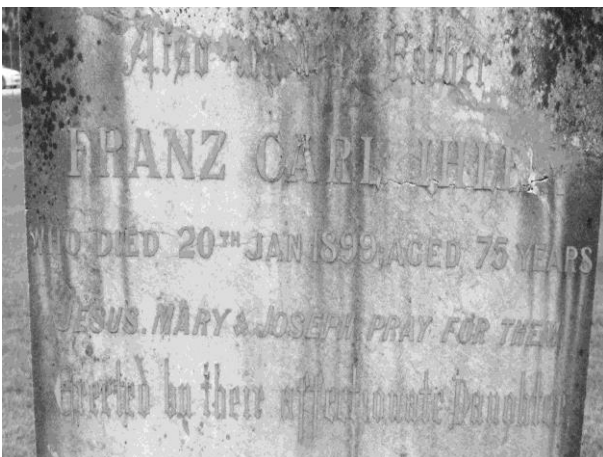 Also Father
FRANZ CARL
WHO DIED 20TH JAN 1899, AGED 75 YEARS
JESUS. MARY & JOSEPH PRAY FOR THEM
Erected by their affectionate Daughter